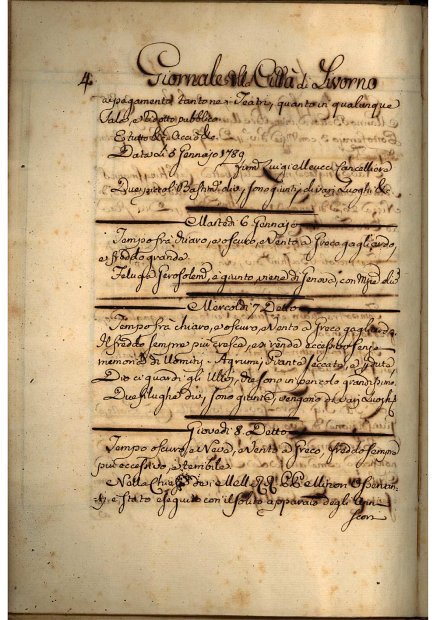 4 Giornale della Città di Livorno
a pagamento tanto ne Teatri, quanto in qualunque
Sala, e Ridotto pubblico
E tutto &c. Acciò &c.
Data li 5 Gennajo 1789
Luigi Meucci Cancelliere
di vari Luoghi &c.
Martedì 6 Gennajo
Tempo fra chiaro, e oscuro, e Vento a Greco gagliardo,
e freddo grande
Feluga è giunta, viene di Genova, con
Mercoldì 7 Detto
Tempo fra chiaro, e oscuro, e Vento a Greco gagliardo.
Il freddo sempre più cresce, e si rende eccessivo senza
memoria di Uomini. Agrumi, Piante seccate, e
Dio ci guardi gli Ulivi, che sono in pericolo grandissimo.
Due Filughe sono giunte, vengono di vari Luoghi
Giovedì 8. Detto
Tempo oscuro, e Neve, e Vento a Greco, freddo sempre
più eccessivo, e terribile
Nella Chiesa dei Molto RR. PP. Minori Osservan-
ti è stato eseguito con il solito apparato degli
scorsi